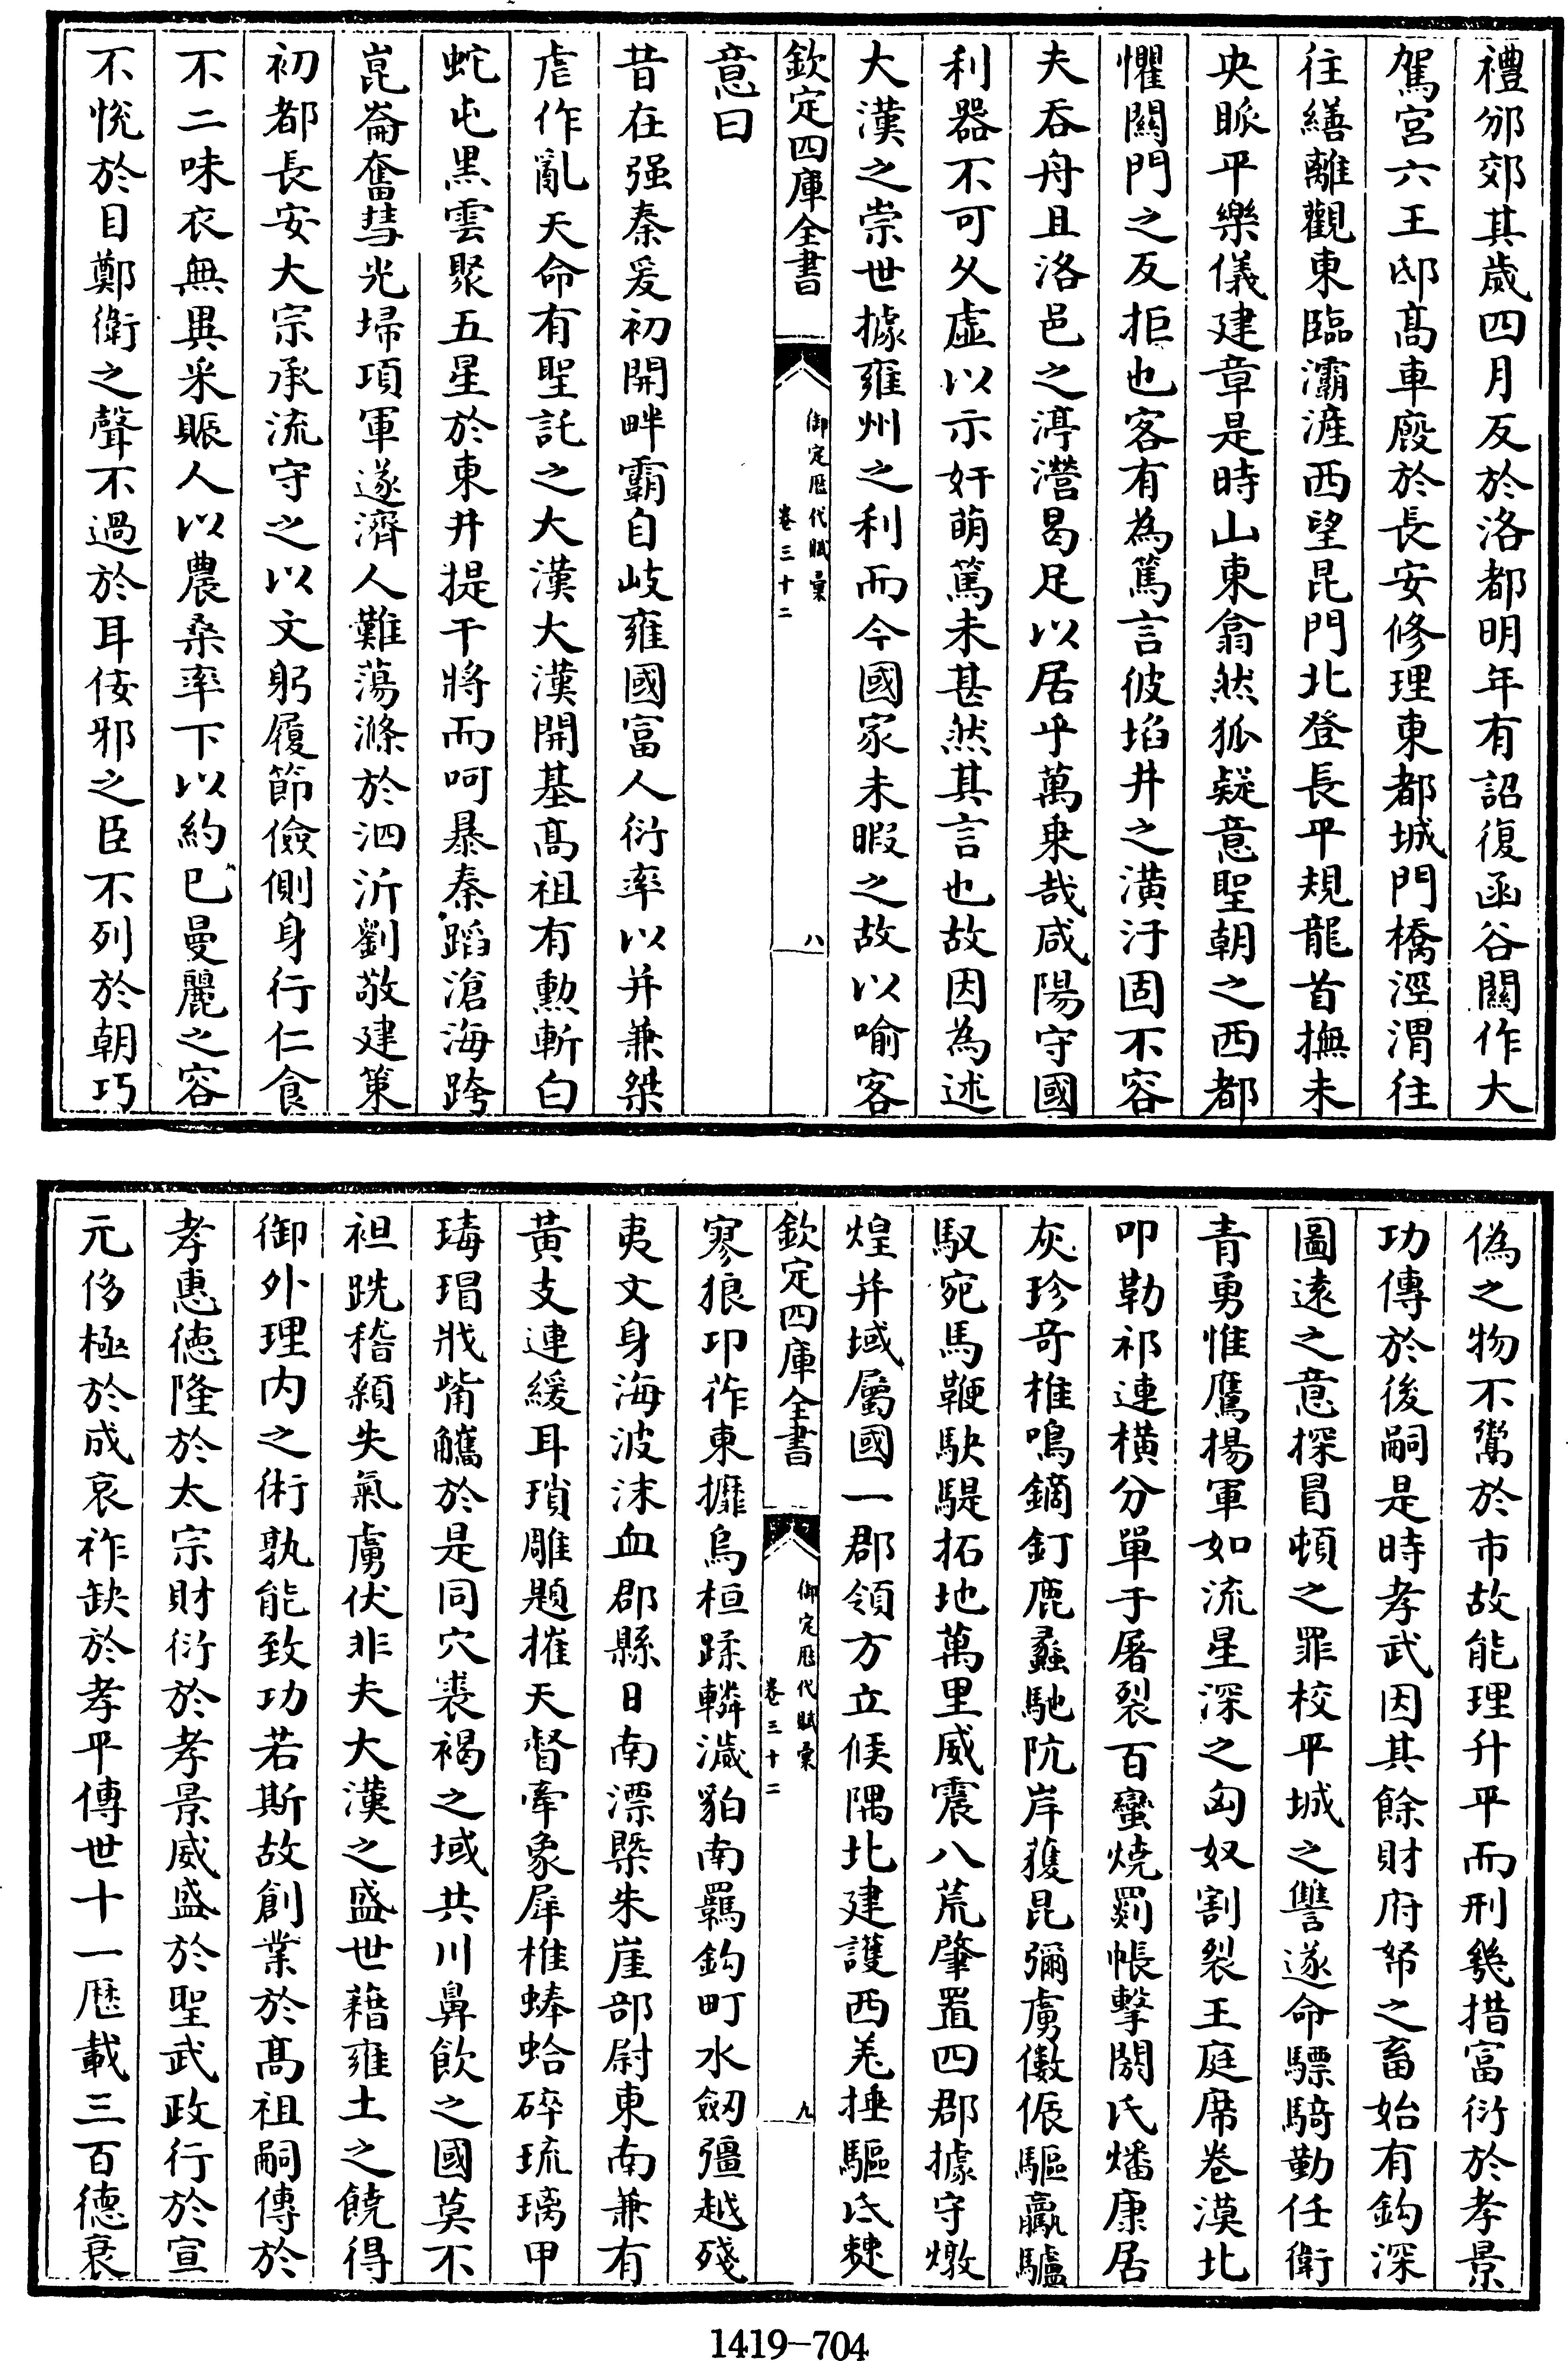 禮邠郊其歲四月反於洛都明年有詔復函谷關作大
駕宮六王邸髙車廄於長安修理東都城門橋涇渭往
往繕離觀東臨灞滻西望昆門北登長平規龍首撫未
央眽平樂儀建章是時山東翕然狐疑意聖朝之西都
懼關門之反拒也客有為篤言彼埳井之潢汙固不容
夫吞舟且洛邑之渟瀯曷足以居乎萬乗哉咸陽守國
利器不可久虚以示奸萌篤未甚然其言也故因為述
大漢之崇世據雍州之利而今國家未暇之故以喻客
欽定四庫全書
御定歴代賦彙
卷三十二
八
意曰
昔在强秦爰初開畔霸自岐雍國富人衍率以并兼桀
虐作亂天命有聖託之大漢大漢開基髙祖有勲斬白
蛇屯黒雲聚五星於東井提干將而呵暴秦蹈滄海跨
崑崙奮彗光埽項軍遂濟人難蕩滌於泗沂劉敬建策
初都長安大宗承流守之以文躬履節儉側身行仁食
不二味衣無異采賑人以農桑率下以約已曼麗之容
不悅於目鄭衛之聲不過於耳佞邪之臣不列於朝巧
偽之物不鬻於市故能理升平而刑幾措富衍於孝景
功傳於後嗣是時孝武因其餘財府帑之畜始有鈎深
圖逺之意探冒頓之罪校平城之讐遂命驃騎勤任衛
青勇惟鷹揚軍如流星深之匈奴割裂王庭席巻漠北
叩勒祁連橫分單于屠裂百蠻燒罽帳撃閼氏燔康居
灰珍竒椎鳴鏑釘鹿蠡馳阬岸獲昆彌虜儌侲驅贏驢
馭宛馬鞭駃騠拓地萬里威震八荒肇置四郡據守燉
煌并域屬國一郡領方立候隅北建護西羌捶驅氐僰
欽定四庫全書
御定歴代賦彙
卷三十二
九
寥狼卭莋東攠烏桓蹂轔濊貊南羈鈎町水劒彊越殘
夷文身海波沫血郡縣日南漂槩朱崖部尉東南兼有
黃支連緩耳瑣雕題摧天督牽象犀椎蜯蛤碎琉璃甲
瑇瑁戕觜觿於是同穴裘褐之域共川鼻飲之國莫不
袒跣稽顙失氣虜伏非夫大漢之盛世藉雍土之饒得
御外理内之術孰能致功若斯故創業於髙祖嗣傳於
孝惠徳隆於太宗財衍於孝景威盛於聖武政行於宣
元侈極於成哀祚缺於孝平傳世十一厯載三百徳衰
1419-704